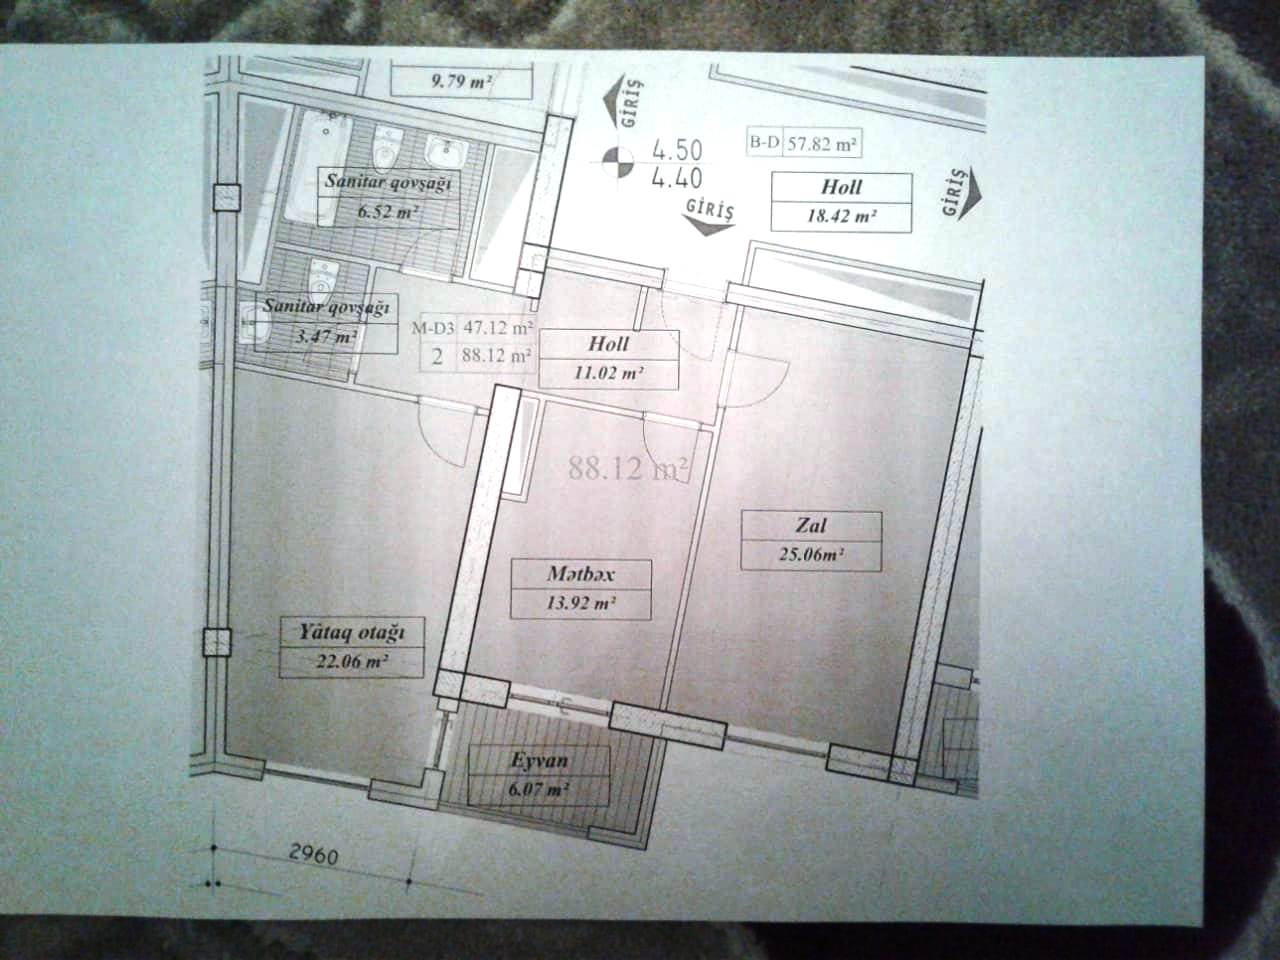 9.79 m²
GİRİŞ
4.50
4.40
B-D 57.82 m²
GİRİŞ
Holl
18.42 m²
GİRİŞ
Sanitar qovşağı
6.52 m²
Sanitar qovşağı
3.47 m²
M-D3 47.12 m²
2 88.12 m²
Holl
11.02 m²
88.12 m²
Zal
25.06m²
Mətbəx
13.92 m²
Yâtaq otağı
22.06 m²
Eyvan
6.07 m²
2960